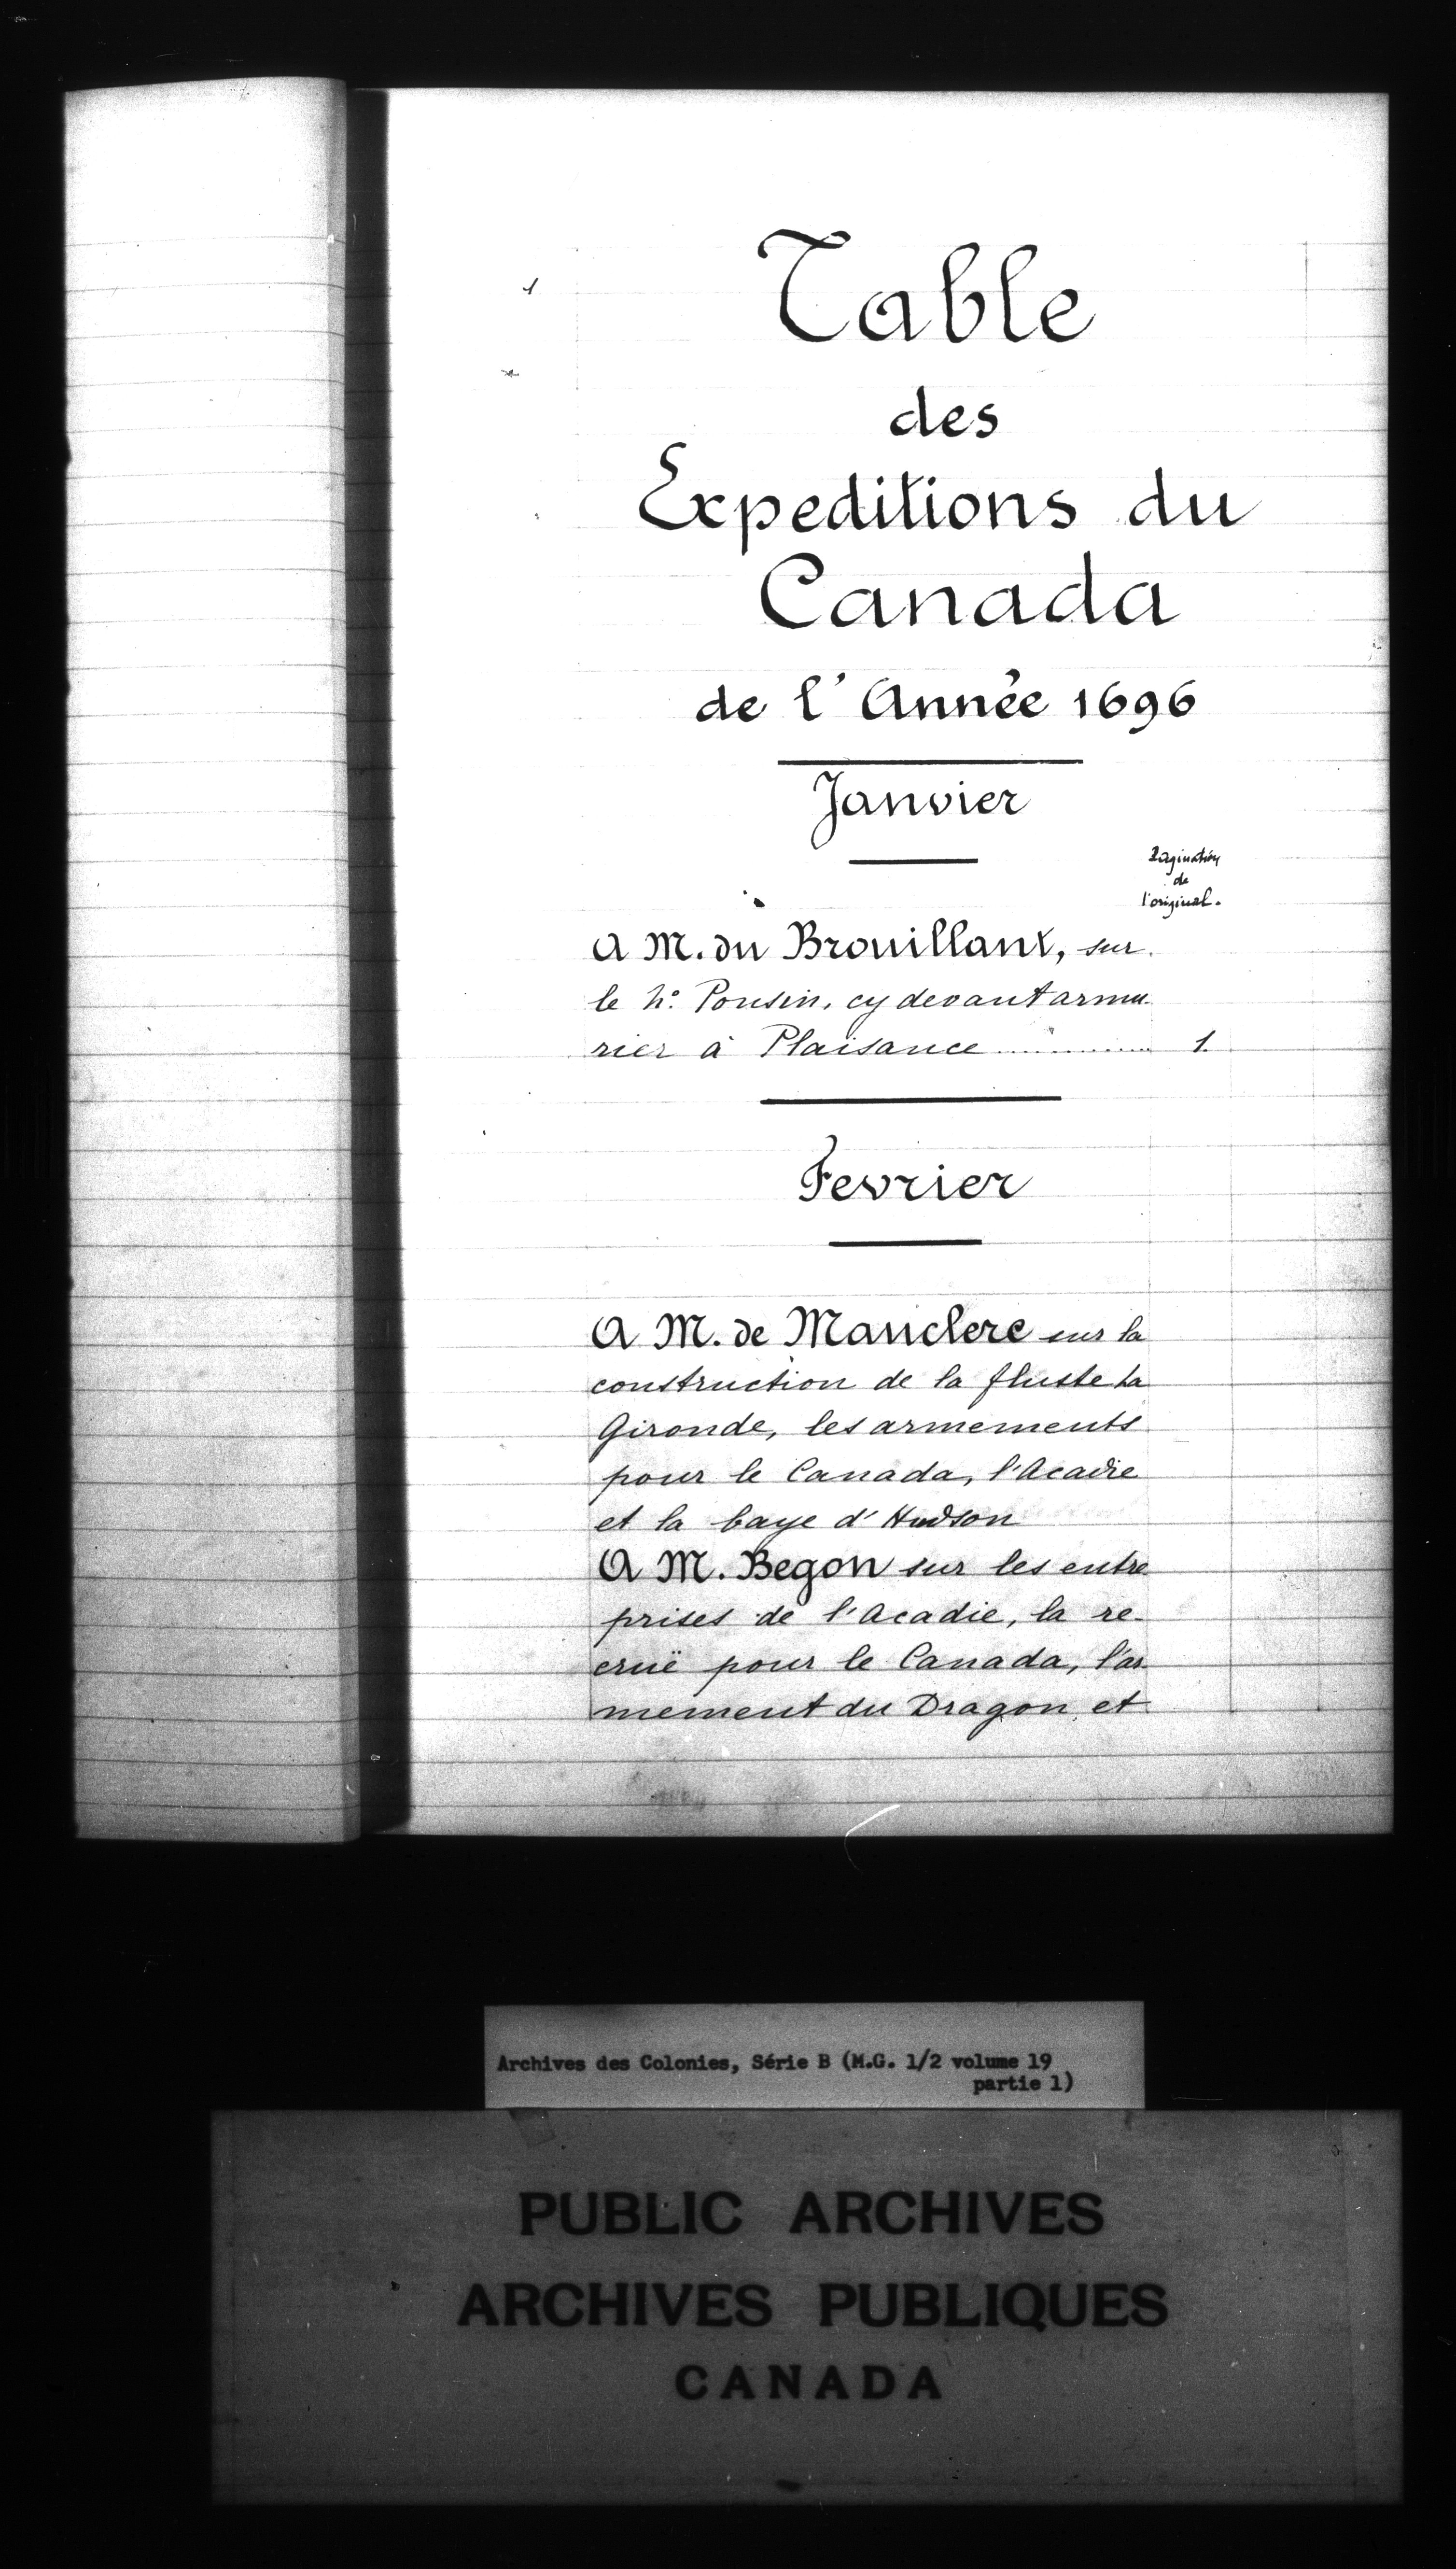 1
Table
des
Expeditions du
Canada
de l'Année 1696
Janvier
Pagination
de
l'original.
A M. du Brouillant, sur
le Pousin, cy devant armu
rier à Plaisance .............. 1.
Fevrier
A M. de Manclere sur la
construction de la fluste la
Gironde, les armements
pour le Canada, l'Acadie
et la baye d'Hudson
A M. Begon sur les entre
prises de l'Acadie, la re-
cruë pour le Canada, l'ar
mement du Dragon et
Archives des Colonies, Série B (M.G. 1/2 volume 19
partie 1)
PUBLIC ARCHIVES
ARCHIVES PUBLIQUES
CANADA